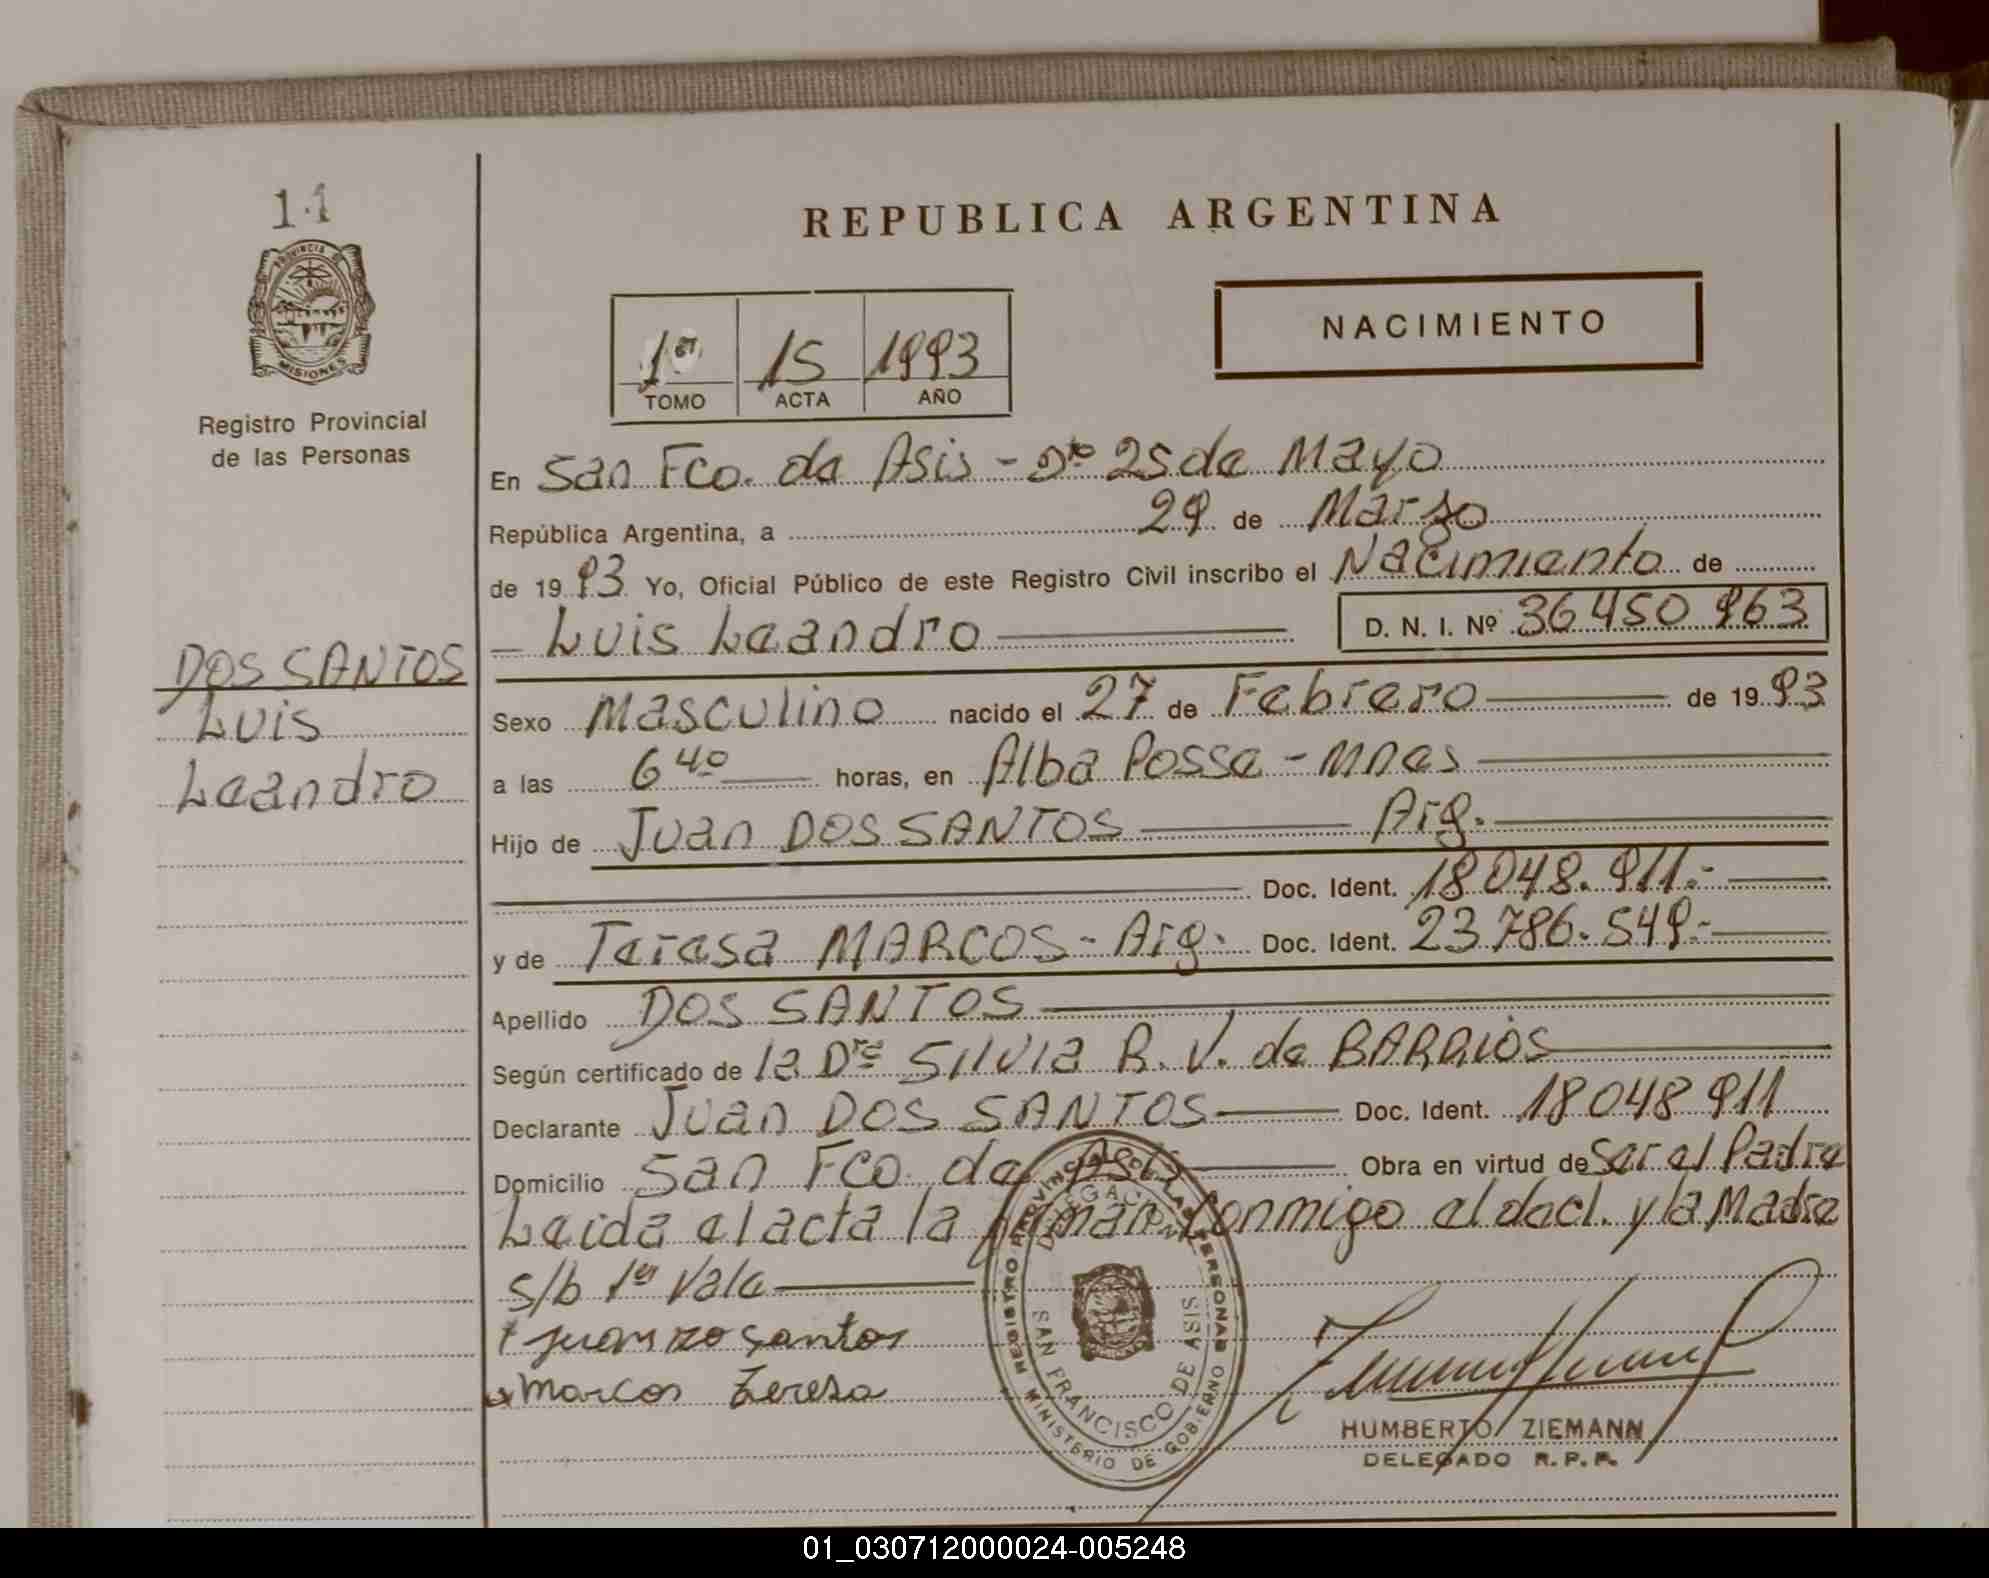 11
PROVINCIA DE
MISIONES
Registro Provincial
de las Personas
DOS SANTOS
Luis
Leandro
REPUBLICA ARGENTINA
1er 15 1993
TOMO ACTA AÑO
NACIMIENTO
En San Fco. de Asis - Dto 25 de Mayo
República Argentina, a 29 de Marzo
de 1993 Yo, Oficial Público de este Registro Civil inscribo el Nacimiento de
Luis Leandro D. N. I. Nº 36450963
Sexo Masculino nacido el 27 de Febrero de 1993
a las 6 40 horas, en Alba Posse - Mnes
Hijo de Juan DOS SANTOS Arg.
Doc. Ident. 18 048. 911.-
y de Teresa MARCOS - Arg. Doc. Ident. 23.786.549.-
Apellido DOS SANTOS
Según certificado de la Dra SILVIA R. V. de BARRIOS
Declarante Juan DOS SANTOS Doc. Ident. 18 048 911
Domicilio San Fco. de Asis Obra en virtud de Ser el Padre
Leida el acta la firman conmigo el decl. y la Madre
s/b 1er Vale
Juan Santos
Marcos Teresa
REGISTRO PROVINCIAL DE LAS PERSONAS
DELEGACION
SAN FRANCISCO DE ASIS
MINISTERIO DE GOBIERNO
HUMBERTO ZIEMANN
DELEGADO R.P.P.
01_030712000024-005248